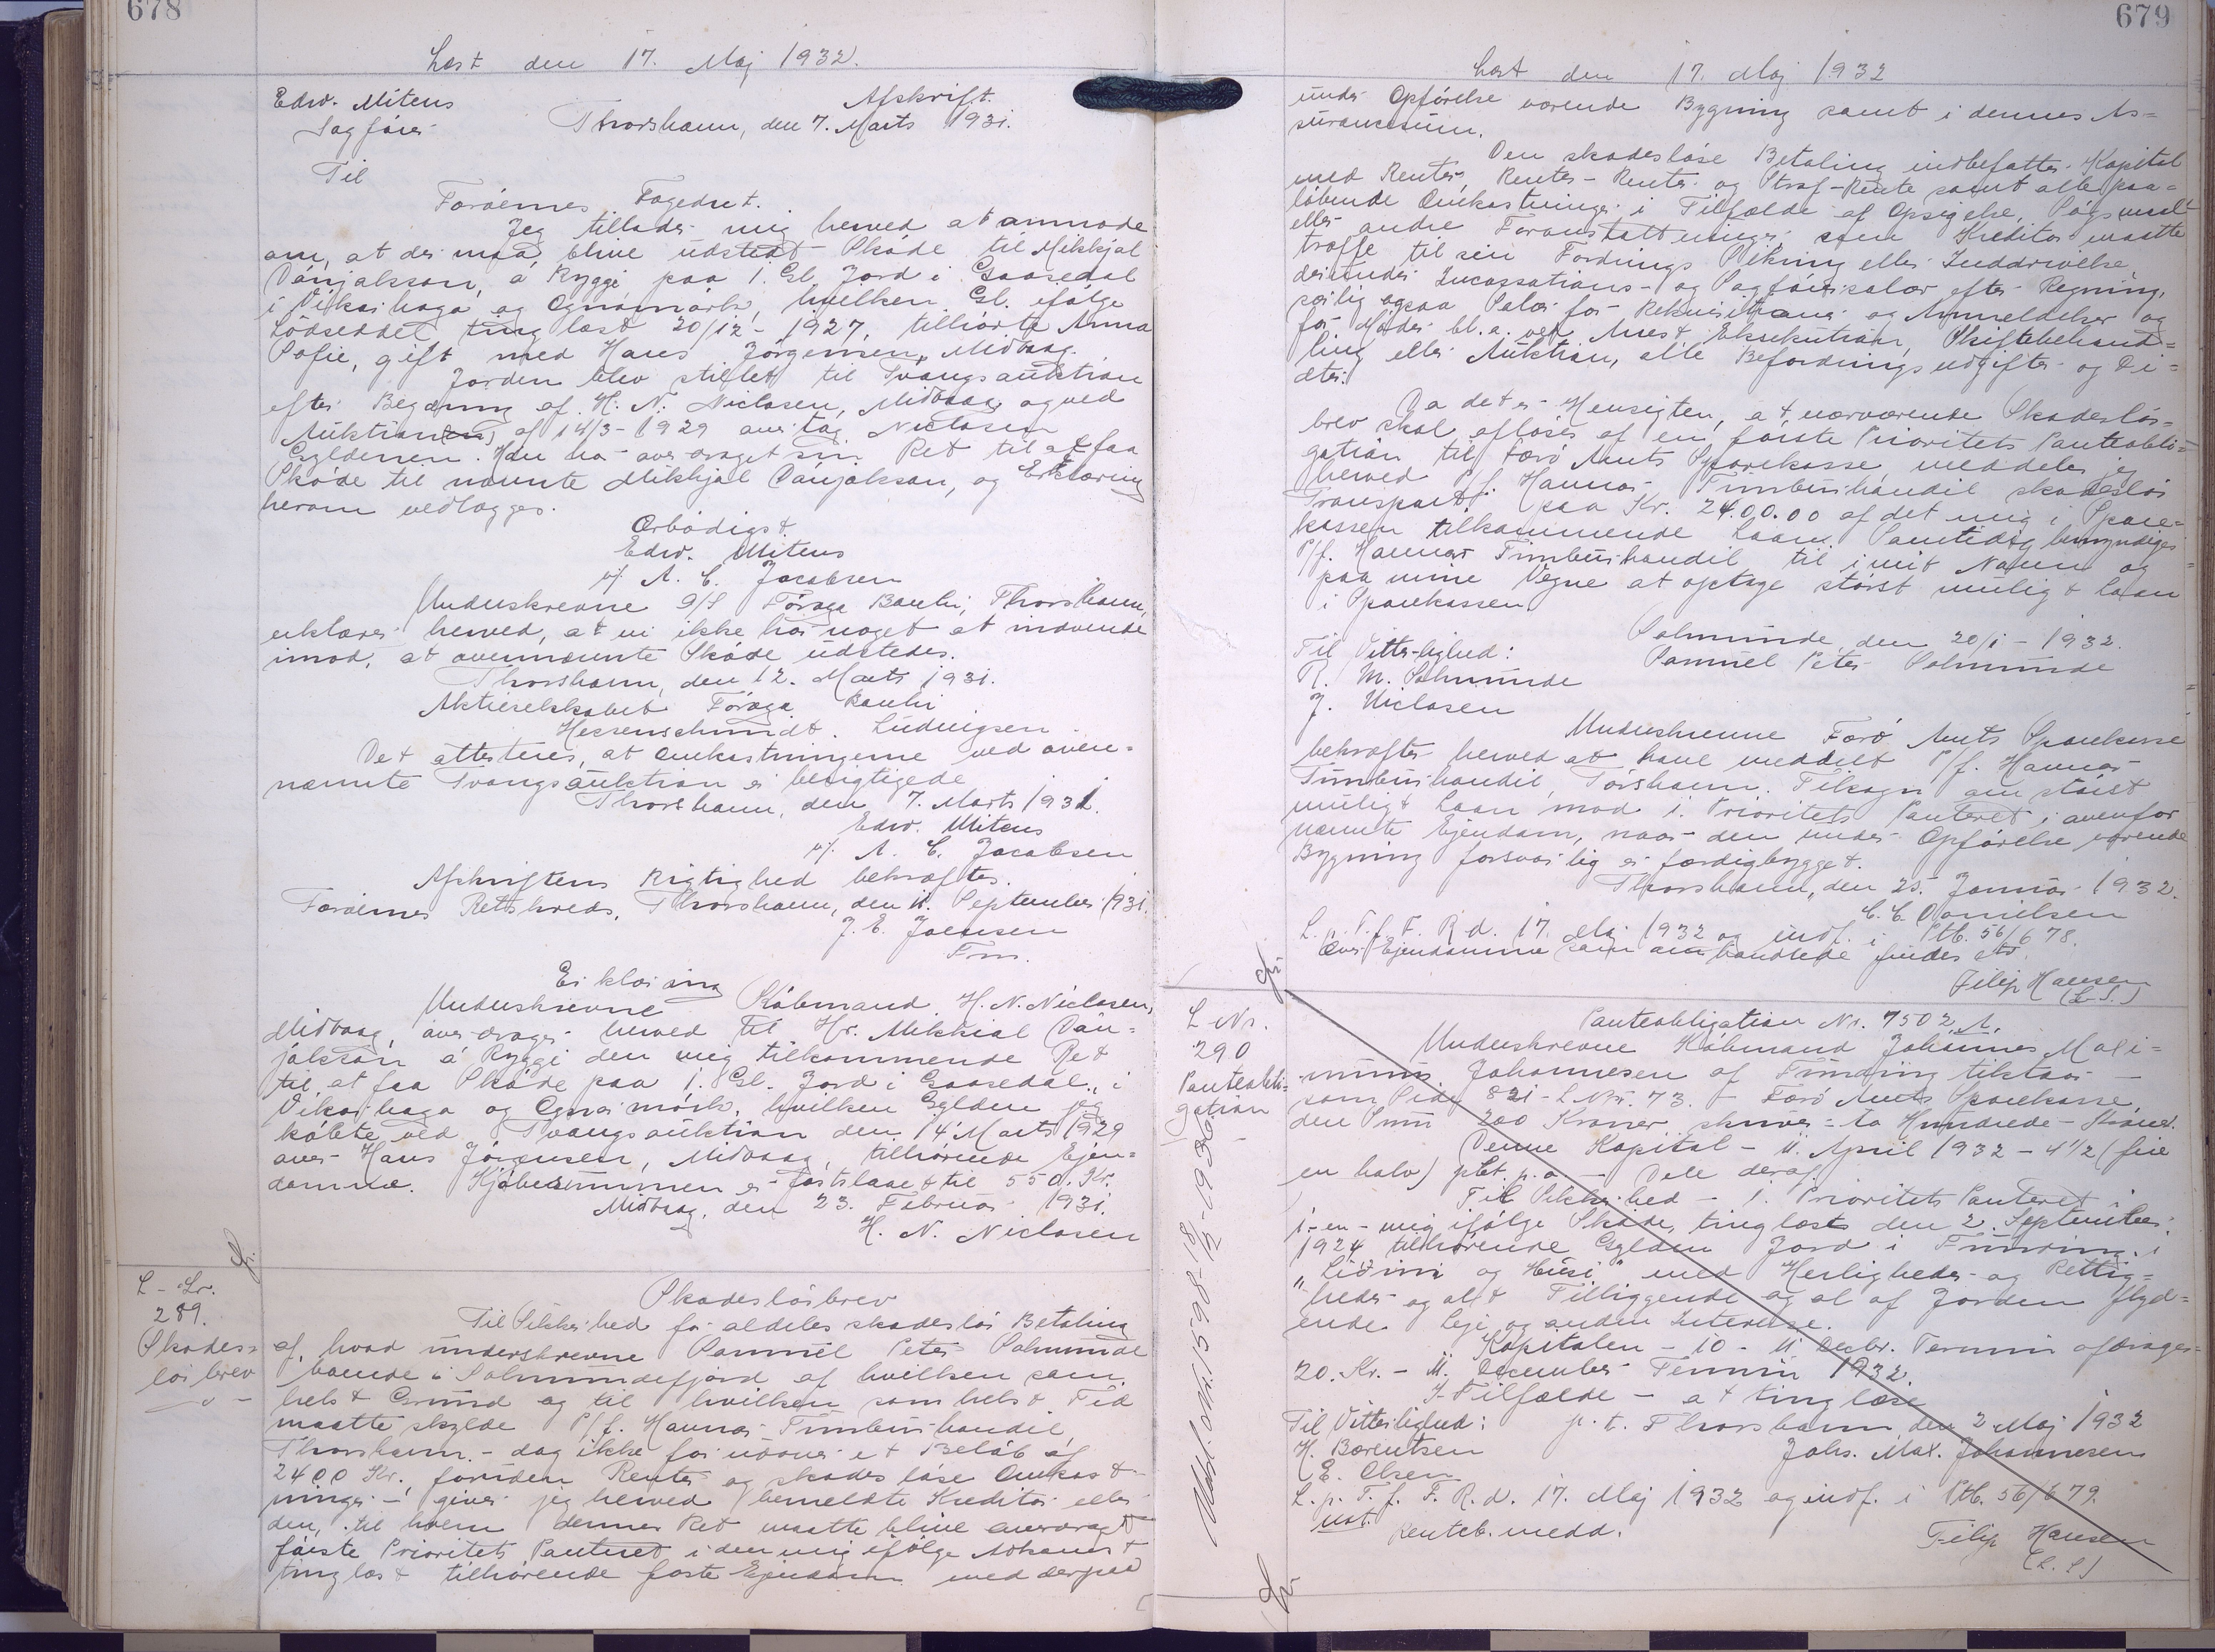 678
Læst den 17. Maj 1932.
Edw. Mitens
Sagfører
Afskrift.
Thorshavn, den 7. Marts 1931.
Til
Færøernes Fogedret.
Jeg tillader mig herved at anmode
om, at der maa blive udstedt Skøde til Mikkjal
Dánjalsson, á Ryggi paa 1 Gl. Jord i Gaasedal
i Vikarhaga og Ognamørk, hvilken Gl. ifølge
Lodseddel tinglæst 20/12 - 1927, tilhørte Anna
Sofie, gift med Hans Jørgensen, Midvaag.
Jorden blev stillet til Tvangsauktion
efter Begæring af H. N. Niclasen, Midvaag, og ved
Auktion(en) af 14/3 - 1929 overtog Niclasen
Gyldenen. Han har overdraget sin Ret til at faa
Skøde til nævnte Mikkjal Dánjalsson, og Erklæring
herom vedlægges.
Ærbødigst.
Edw. Mitens
v/ A. C. Jacobsen
Underskrevne A/S Føroya Banki, Thorshavn,
erklærer herved, at vi ikke har noget at indvende
imod, at ovennævnte Skøde udstedes.
Thorshavn, den 12. Marts 1931.
Aktieselskabet Føroya Banki
Hessenschmidt. Ludvigsen
Det attesteres, at Omkostningerne ved oven-
nævnte Tvangsauktion er berigtigede
Thorshavn, den 7. Marts 1931.
Edw. Mitens
v/ A. C. Jacobsen
Afskriftens Rigtighed bekræftes.
Færøernes Retskreds, Thorshavn, den 11. September 1931.
J. E. Joensen
Fm.
Erklæring
Underskrevne Købmand H. N. Niclasen,
Midvaag, overdrager herved til Hr. Mikkjal Dán-
jalsson á Ryggi den mig tilkommende Ret
til at faa Skøde paa 1. Gl. Jord i Gaasedal, i
Vikarhaga og Ognarmørk, hvilken Gylden jeg
købte ved Tvangsauktion den 14 Marts 1929
over Hans Jørgensen, Midvaag, tilhørende Ejen-
domme. Kjøbesummen er fastslaaet til 550. Kr.
Midvaag, den 23. Februar 1931.
H. N. Niclasen
L - Nr.
289.
Skades-
løsbrev
Skadesløsbrev
Til Sikkerhed for aldeles skadesløs Betaling
af, hvad underskrevne Samuel Peter Salmunde
boende i Salmundefjord af hvilken som
helst Grund og til hvilken som helst Tid
maatte skylde P/f. Havnar Timburhandil,
Thorshavn - dog ikke for udover et Beløb af
2400 Kr, foruden Renter og skadesløse Omkost-
ninger - giver jeg herved bemeldte Kreditor eller
den, til hvem dennes Ret maatte blive overdraget
første Prioritets Panteret i den mig ifølge Adkomst
tinglæst tilhørende faste Ejendom med derpaa
679
Læst den 17. Maj 1932
under Opførelse værende Bygning samt i dennes As-
surancesum.
Den skadesløse Betaling indbefatter Kapital
med Renter, Rentes-Rente og Straf-Rente samt alle paa-
løbende Omkostninger i Tilfælde af Opsigelse, Søgsmaal
eller andre Foranstaltninger som Kreditor maatte
træffe til sin Fordrings Sikring eller Inddrivelse,
derunder Incassations- og Sagførersalær efter Regning,
særlig ogsaa Salær for Rekvisitioner og Anmeldelser og
for Møder bl. a. ved Arrest, Eksekution, Skiftebehand-
ling eller Auktion, alle Befordringsudgifter og Di-
äter.
Da det er Hensigten, at nærværende Skadesløs-
brev skal afløses af en første Prioritets Panteobli-
gation til Færø Amts Sparekasse meddeler jeg
herved P/f. Havnar Timburhandil skadesløs
Transport paa Kr. 2400.00 af det mig i Spare-
kassen tilkommende Laan. Samtidig bemyndiges
P/f. Havnar Timburhandil til i mit Navn og
paa mine Vegne at optage størst muligt Laan
i Sparekassen.
Salmunde, den 20/1 - 1932.
Til Vitterlighed:
Samuel Peter Salmunde
M. Salmunde
J. Niclasen
Underskrevne Færø Amts Sparekasse
bekræfter herved at have meddelt P/f. Havnar
Timburhandil, Tórshavn. Tilsagn om størst
muligt Laan mod 1. Prioritets Panteret i ovenfor
nævnte Ejendom, naar den under Opførelse værende
Bygning forsvarlig er færdigbygget.
Thorshavn, den 25. Januar 1932.
C. C. Danielsen
L. p. T. f. F. R. d. 17. Maj 1932 og indf. i Ptb. 56/678.
Over Ejendomme som omhandlede findes
Filip Hansen
(L. S.)
L Nr.
290
Panteobli-
gation
Panteobligation Nr. 7502 A.
Underskrevne Købmand Johannes Maxi-
minus Johannesen af Funding tilstaar -
som Side 821 - L. Nr. 73. - Færø Amts Sparekasse
den Sum 200 Kroner, skriver to Hundrede - Kroner.
Denne Kapital - 11. April 1932 - 4 1/2 (fire
en halv) pCt. p. a - Dele deraf
Til Sikkerhed - 1. Prioritets Panteret
i - en - mig ifølge Skøde, tinglæst den 2. September
1924 tilhørende Gylden Jord i Funding. i
"Lidini og Húsi" med Herligheder og Rettig-
heder og alt Tilliggende og al af Jorden flyd-
ende Leje og anden Interesse.
Kapitalen - 10 - 11. Decbr. Termin afdrages
20. Kr. - 11. December Termin 1932.
I Tilfælde - at tinglæse
Til Vitterlighed: p. t. Thorshavn, den 2 Maj 1932
H. Barentsen
Johs. Max. Johannesen
E. Olsen
L. p. T. f. F. R. d. 17. Maj 1932 og indf. i Ptb. 56/679.
not.
Renteb. medd.
Filip Hansen
(L. S)